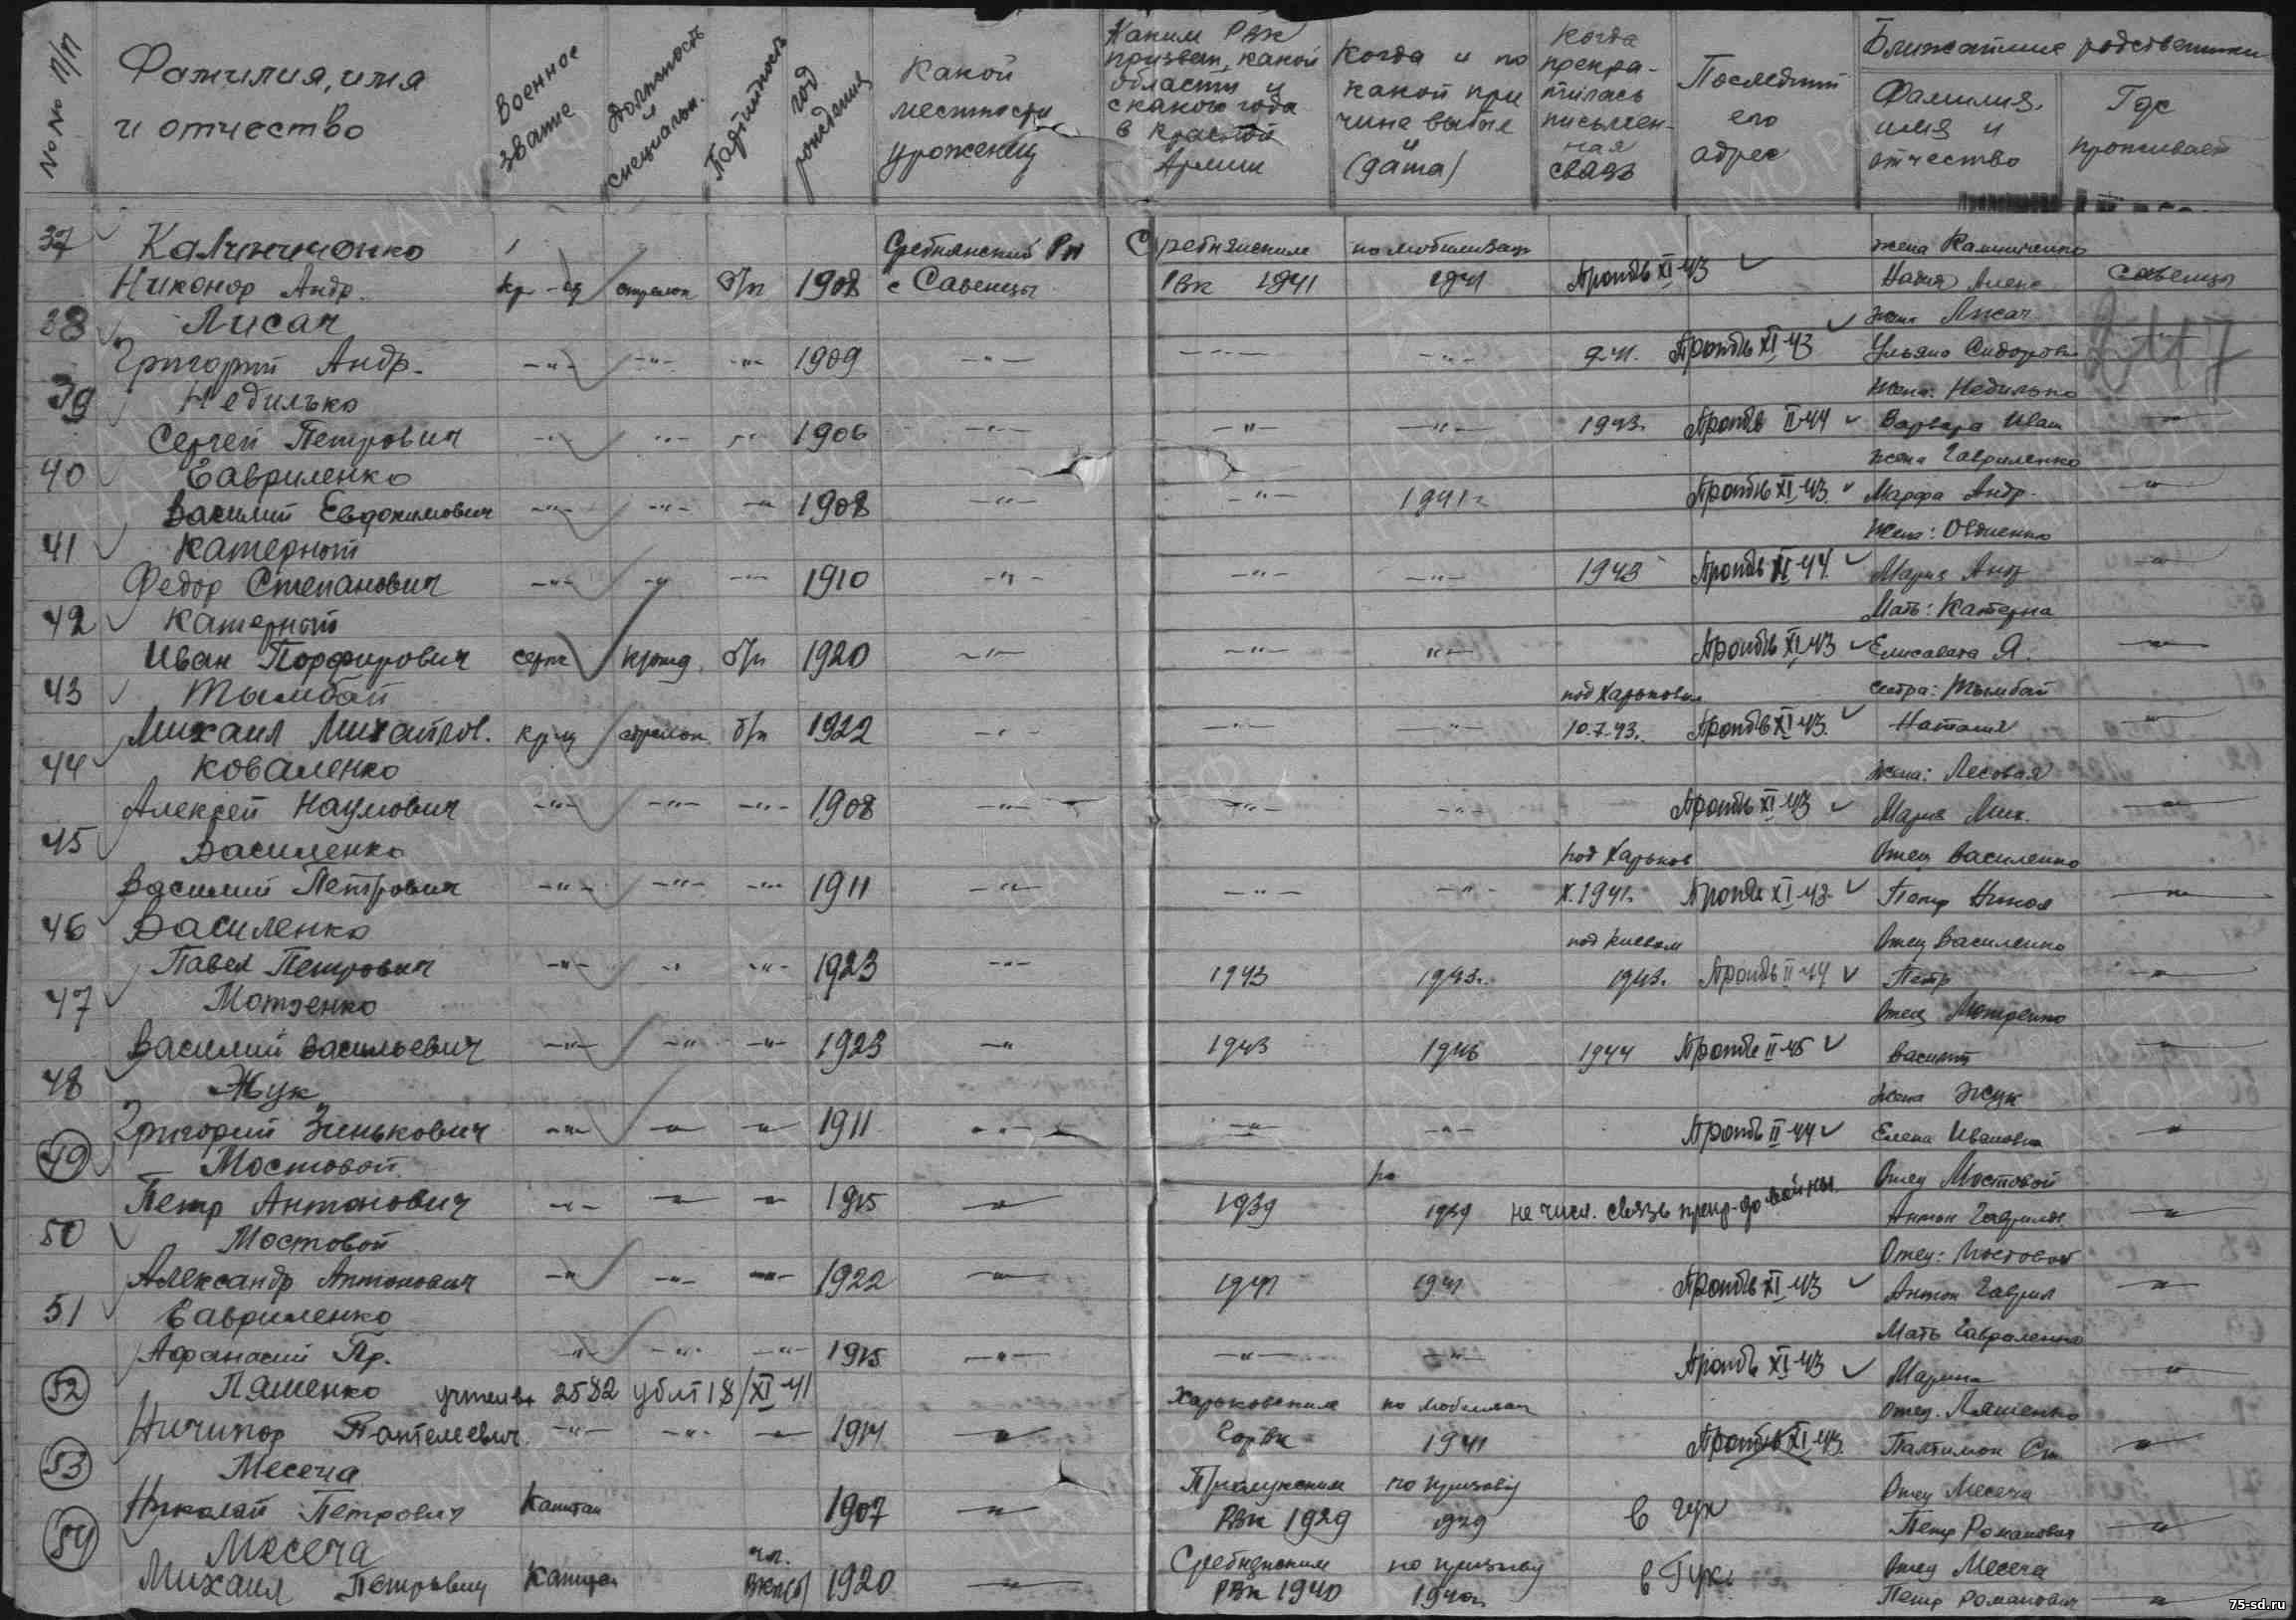 №№ п/п
Фамилия, имя и отчество
Военное звание
Должность и специальн.
Партийность
год рождения
Какой местности уроженец
Каким РВК призван, какой области и с какого года в Красной Армии
Когда и по какой причине выбыл (дата)
Когда прекратилась письменная связь
Последний его адрес
Ближайшие родственники
Фамилия, имя и отчество
Где проживает
37 Калиниченко Сребнянский Рн Сребнянским по мобилизац жена Калиниченко
Никонор Андр. кр-ец стрелок б/п 1908 с Савенцы РВК 1941 1941 XI-43 Савенцы
38 Лисач жена Лисач
Григорий Андр. -"- -"- -"- 1909 -"- -"- -"- XI-43 Ульяна Сидоровн
39 Недилько жена: Недилько
Сергей Петрович -"- -"- -"- 1906 -"- -"- -"- 1943. II-44 Варвара Иван -"-
40 Гавриленко жена Гавриленко
Василий Евдокимович -"- -"- -"- 1908 -"- -"- 1941г XI-43 Марфа Андр. -"-
41 Катерной жена: Овдиенко
Федор Степанович -"- -"- -"- 1910 -"- -"- -"- 1943 Мария Анд -"-
42 Катерной Мать: Катерна
Иван Порфирович серж б/п 1920 -"- -"- -"- XI-43 Елисавета Я. -"-
43 Тымбай под Харьковом сестра: Тымбай
Михаил Михайлов. кр-ец стрелок б/п 1922 -"- -"- -"- 10.7.43. XI-43 Наталия -"-
44 Коваленко жена: Лесовая
Алексей Наумович -"- -"- -"- 1908 -"- -"- -"- XI-43 Мария Мих. -"-
45 Василенко под Харьков Отец Василенко
Василий Петрович -"- -"- -"- 1911 -"- -"- -"- X.1941г. XI-43 Петр Никол -"-
46 Василенко под Киевом Отец Василенко
Павел Петрович -"- -"- -"- 1923 -"- 1943 1943г. 1943г. II-44 Петр -"-
47 Мотренко Отец Мотренко
Василий Васильевич -"- -"- -"- 1923 -"- 1943 1943 1944 II-45 Василий -"-
48 Жук жена Жук
Григорий Зинькович -"- -"- -"- 1911 -"- -"- -"- II-44 Елена Ивановна -"-
49 Мостовой по Отец Мостовой
Петр Антонович -"- -"- -"- 1915 -"- 1939 1939 связь прекр. до войны. Антон Гаврилов -"-
50 Мостовой Отец: Мостовой
Александр Антонович -"- -"- -"- 1922 -"- 1941 1941 XI-43 Антон Гаврил -"-
51 Гавриленко Мать Гавриленко
Афанасий Пр. -"- -"- -"- 1915 -"- -"- -"- XI-43 Марина -"-
52 Ляшенко 2582 убит 18/XI-41 Харьковским по мобилизац Отец. Ляшенко
Ничипор Пантелеевич -"- -"- -"- 1914 -"- ГорВк 1941 XI-43 -"-
53 Месеча Прилукским по призову Отец Месеча
Николай Петрович Капитан 1907 -"- РВк 1929 1929 Петр Романович -"-
54 Месеча чл. Сребнянским по призыву Отец Месеча
Михаил Петрович Капитан ВКП(б) 1920 -"- РВк 1940 1940г Петр Романович -"-
2117
75-sd.ru